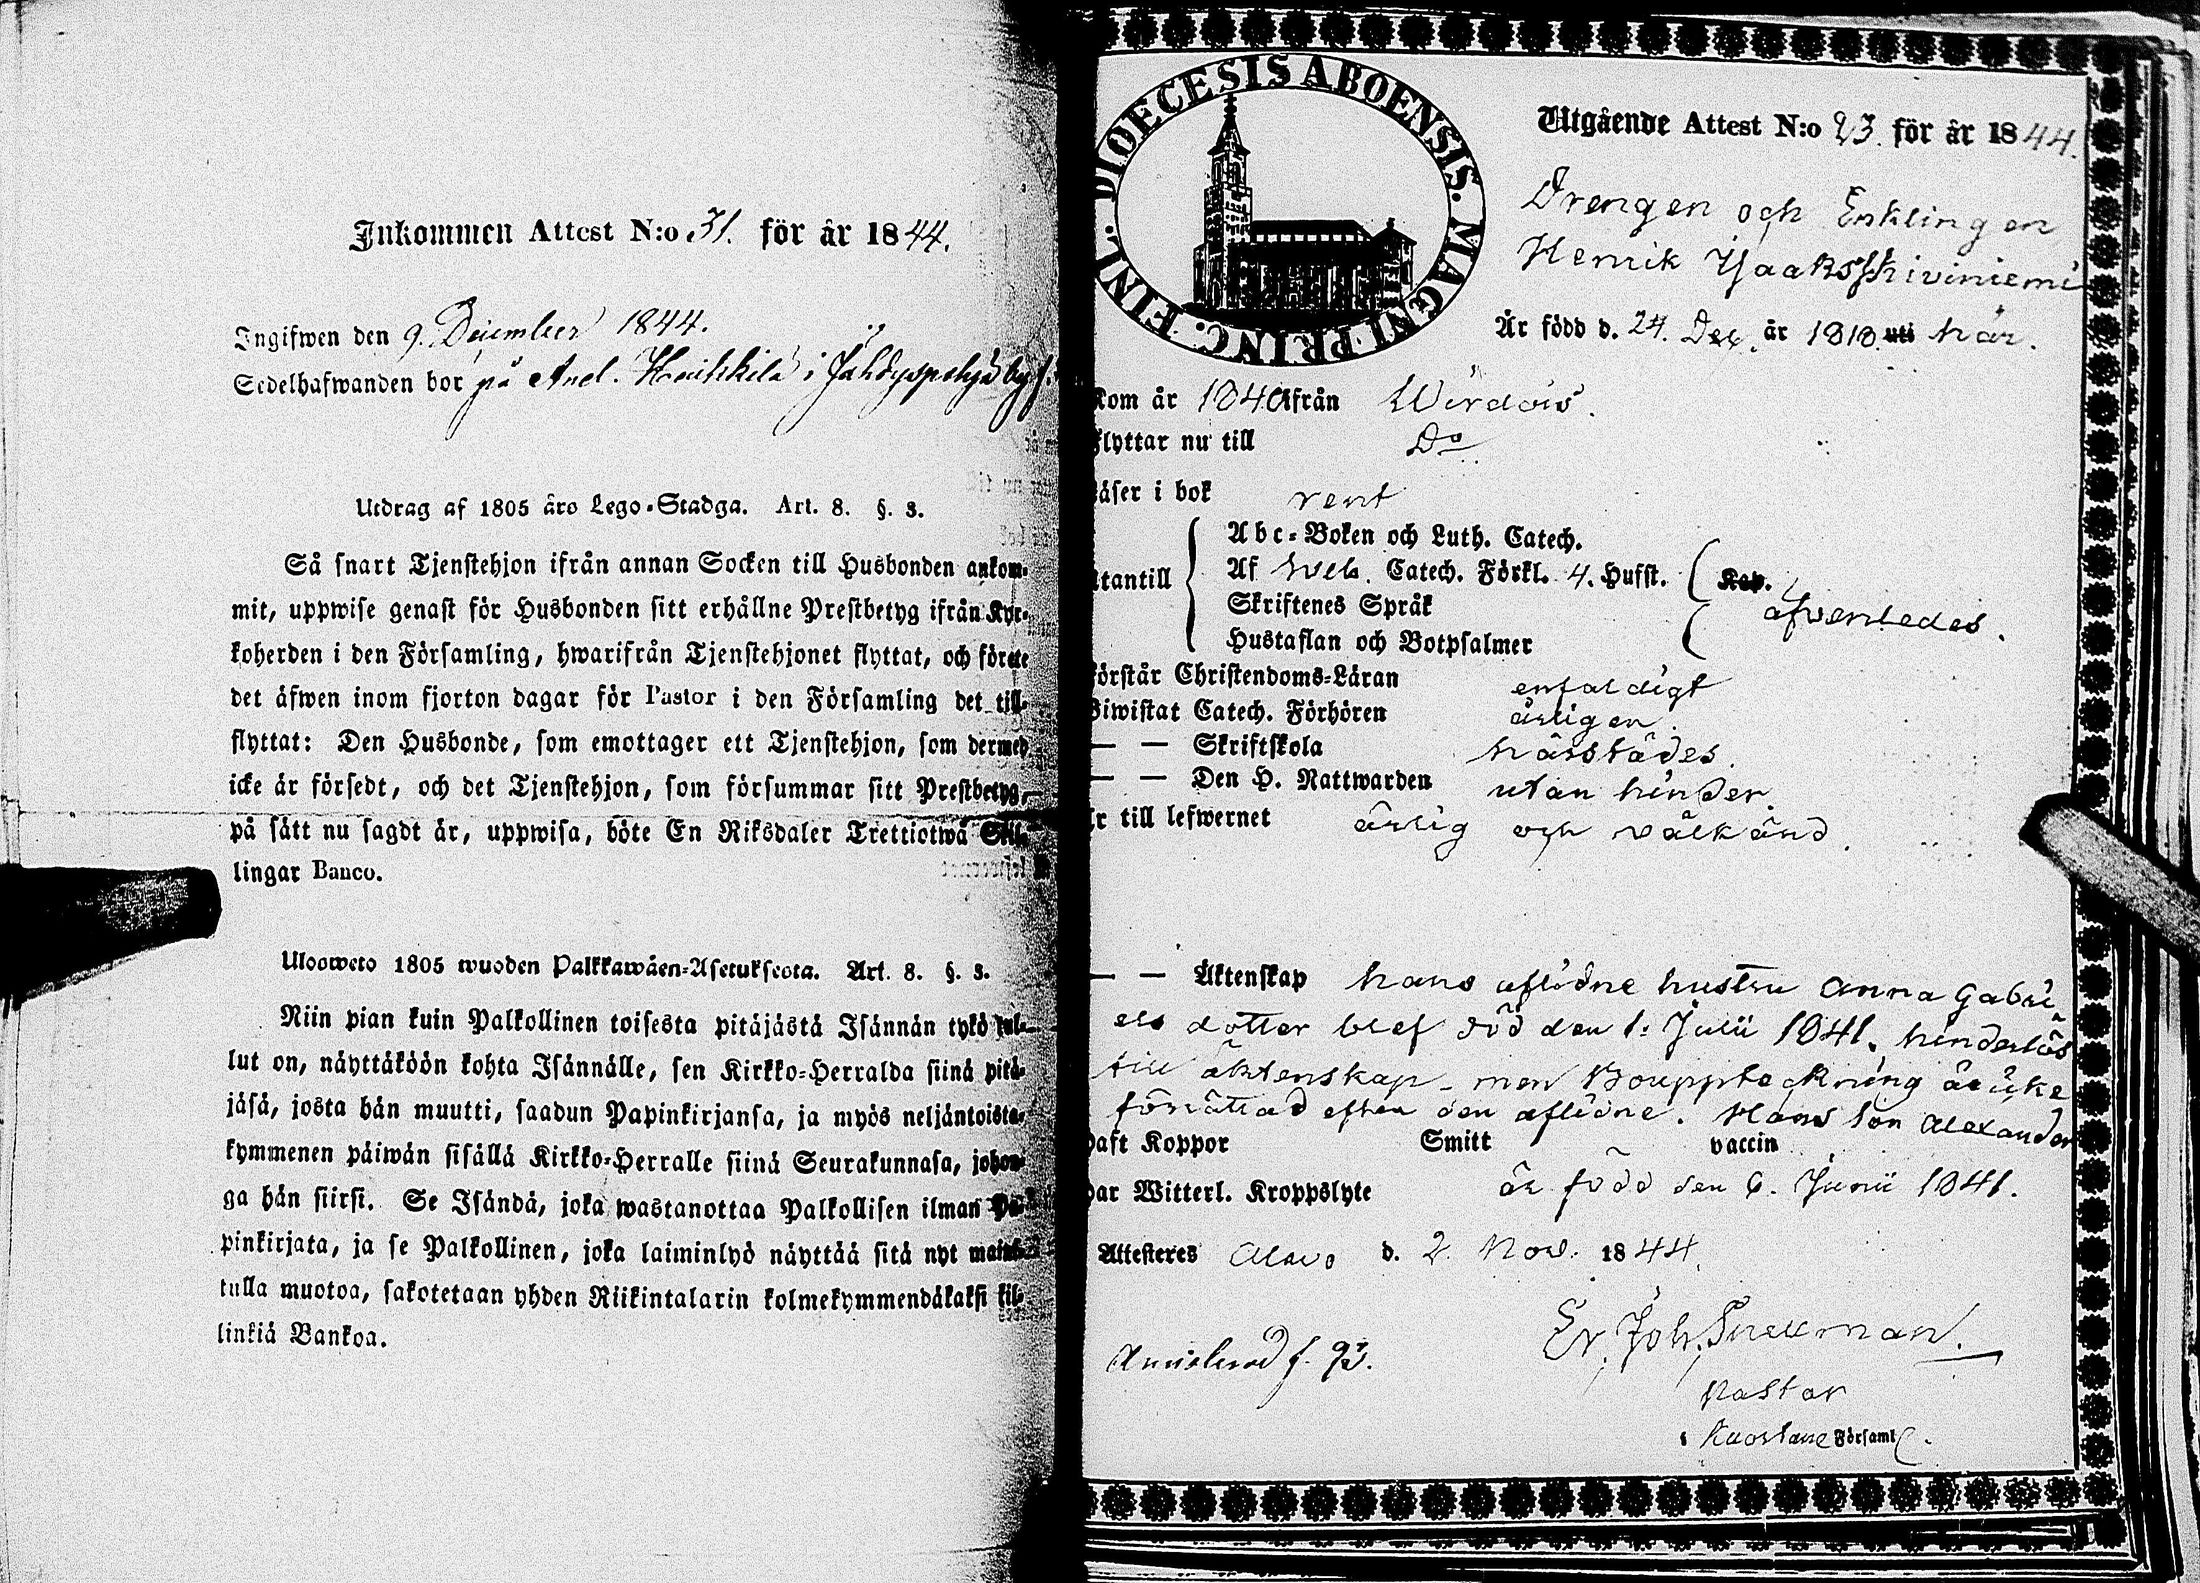 Inkommen Attest N:o 31. för år 1844.
Ingifwen den 9. December 1844.
Sedelhafwanden bor på And. Heikkilä i Jähdyspohja by
Utdrag af 1805 års Lego-Stadga. Art. 8. §. 3.
Så snart Tjenstehjon ifrån annan Socken till Husbonden ankom-
mit, uppwise genast för Husbonden sitt erhållne Prestbetyg ifrån Kyr-
koherden i den Församling, hwarifrån Tjenstehjonet flyttat, och förete
det äfwen inom fjorton dagar för Pastor i den Församling det till-
flyttat: Den Husbonde, som emottager ett Tjenstehjon, som dermed
icke är försedt, och det Tjenstehjon, som försummar sitt Prestbetyg,
på sätt nu sagdt är, uppwisa, böte En Riksdaler Trettiotwå Skil-
lingar Banco.
Ulosweto 1805 wuoden Palkkawäen-Asetuksesta. Art. 8. §. 3.
Niin pian kuin Palkollinen toisesta pitäjästä Isännän tykö tul-
lut on, näyttäköön kohta Isännälle, sen Kirkko-Herralda siinä pitä-
jäsä, josta hän muutti, saadun Papinkirjansa, ja myös neljäntoista-
kymmenen päiwän sisällä Kirkko-Herralle siinä Seurakunnasa, johon-
ga hän siirsi. Se Isändä, joka wastanottaa Palkollisen ilman Pa-
pinkirjata, ja se Palkollinen, joka laiminlyö näyttää sitä nyt mainit-
tulla muotoa, sakotetaan yhden Riikintalarin kolmekymmendäkaksi kil-
linkiä Bankoa.
DIOECESIS ABOENSIS. MAGNI PRINC. FINL.
Utgående Attest N:o 23. för år 1844.
Drengen och Enklingen
Henrik Isaaksson Kiviniemi
Är född d. 24. Dec. år 1818 uti här.
Kom år 1840 ifrån Wirdois.
Flyttar nu till Do
Läser i bok rent
Utantill
Abc-Boken och Luth. Catech.
Af Sveb. Catech. Förkl. 4. Hufst. Kap.
Skriftenes Språk
Hustaflan och Botpsalmer
afvenledes.
Förstår Christendoms-Läran enfaldigt
Biwistat Catech. Förhören årligen.
— — Skriftskola härstädes.
— — Den H. Nattwarden utan hinder.
Är till lefwernet ärlig och välkänd.
— — Äktenskap hans aflidne hustru Anna Gabri-
els dotter blef död den 1. Julii 1841. hinderlös
till äktenskap - men Bouppteckning är icke
förrättad efter den aflidne. Hans son Alexander
Haft Koppor Smitt vaccin
Har Witterl. Kroppslyte
är född den 6. Junii 1841.
Attesteres Alavo d. 2. Nov. 1844.
Er. Joh. Snellman.
Pastor
Kuortane Församl.
f. 93.